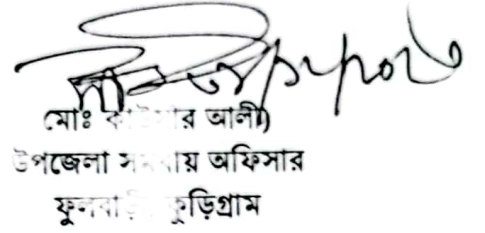 মোঃ কাউসার আলী
উপজেলা সমবায় অফিসার
ফুলবাড়ী, কুড়িগ্রাম